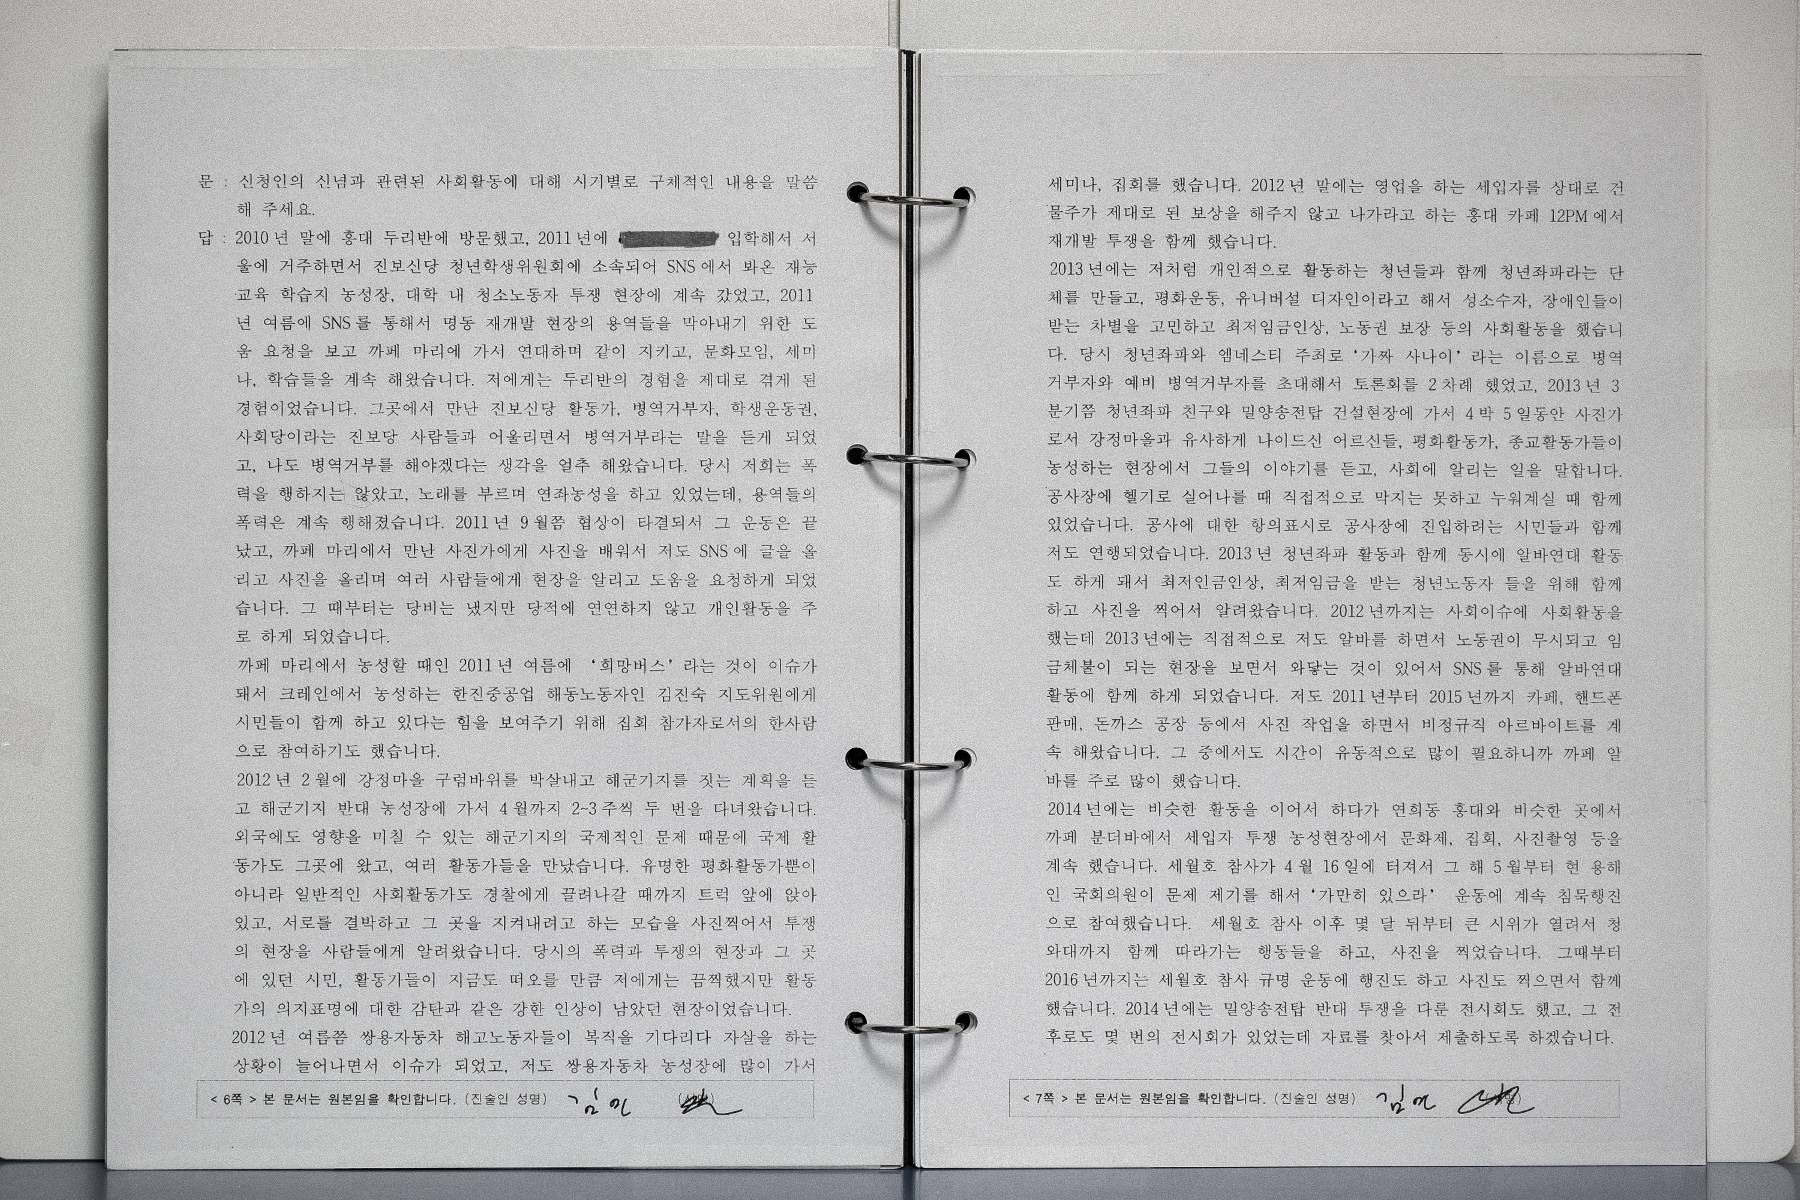 문 : 신청인의 신념과 관련된 사회활동에 대해 시기별로 구체적인 내용을 말씀
해 주세요.
답 : 2010년 말에 홍대 두리반에 방문했고, 2011년에 입학해서 서
울에 거주하면서 진보신당 청년학생위원회에 소속되어 SNS에서 봐온 재능
교육 학습지 농성장, 대학 내 청소노동자 투쟁 현장에 계속 갔었고, 2011
년 여름에 SNS를 통해서 명동 재개발 현장의 용역들을 막아내기 위한 도
움 요청을 보고 까페 마리에 가서 연대하며 같이 지키고, 문화모임, 세미
나, 학습들을 계속 해왔습니다. 저에게는 두리반의 경험을 제대로 겪게 된
경험이었습니다. 그곳에서 만난 진보신당 활동가, 병역거부자, 학생운동권,
사회당이라는 진보당 사람들과 어울리면서 병역거부라는 말을 듣게 되었
고, 나도 병역거부를 해야겠다는 생각을 얼추 해왔습니다. 당시 저희는 폭
력을 행하지는 않았고, 노래를 부르며 연좌농성을 하고 있었는데, 용역들의
폭력은 계속 행해졌습니다. 2011년 9월쯤 협상이 타결되서 그 운동은 끝
났고, 까페 마리에서 만난 사진가에게 사진을 배워서 저도 SNS에 글을 올
리고 사진을 올리며 여러 사람들에게 현장을 알리고 도움을 요청하게 되었
습니다. 그 때부터는 당비는 냈지만 당적에 연연하지 않고 개인활동을 주
로 하게 되었습니다.
까페 마리에서 농성할 때인 2011년 여름에 ‘희망버스’라는 것이 이슈가
돼서 크레인에서 농성하는 한진중공업 해동노동자인 김진숙 지도위원에게
시민들이 함께 하고 있다는 힘을 보여주기 위해 집회 참가자로서의 한사람
으로 참여하기도 했습니다.
2012년 2월에 강정마을 구럼바위를 박살내고 해군기지를 짓는 계획을 듣
고 해군기지 반대 농성장에 가서 4월까지 2~3주씩 두 번을 다녀왔습니다.
외국에도 영향을 미칠 수 있는 해군기지의 국제적인 문제 때문에 국제 활
동가도 그곳에 왔고, 여러 활동가들을 만났습니다. 유명한 평화활동가뿐이
아니라 일반적인 사회활동가도 경찰에게 끌려나갈 때까지 트럭 앞에 앉아
있고, 서로를 결박하고 그 곳을 지켜내려고 하는 모습을 사진찍어서 투쟁
의 현장을 사람들에게 알려왔습니다. 당시의 폭력과 투쟁의 현장과 그 곳
에 있던 시민, 활동가들이 지금도 떠오를 만큼 저에게는 끔찍했지만 활동
가의 의지표명에 대한 감탄과 같은 강한 인상이 남았던 현장이었습니다.
2012년 여름쯤 쌍용자동차 해고노동자들이 복직을 기다리다 자살을 하는
상황이 늘어나면서 이슈가 되었고, 저도 쌍용자동차 농성장에 많이 가서
< 6쪽 > 본 문서는 원본임을 확인합니다. (진술인 성명) 김민
세미나, 집회를 했습니다. 2012년 말에는 영업을 하는 세입자를 상대로 건
물주가 제대로 된 보상을 해주지 않고 나가라고 하는 홍대 카페 12PM에서
재개발 투쟁을 함께 했습니다.
2013년에는 저처럼 개인적으로 활동하는 청년들과 함께 청년좌파라는 단
체를 만들고, 평화운동, 유니버설 디자인이라고 해서 성소수자, 장애인들이
받는 차별을 고민하고 최저임금인상, 노동권 보장 등의 사회활동을 했습니
다. 당시 청년좌파와 엠네스티 주최로 ‘가짜 사나이’라는 이름으로 병역
거부자와 예비 병역거부자를 초대해서 토론회를 2차례 했었고, 2013년 3
분기쯤 청년좌파 친구와 밀양송전탑 건설현장에 가서 4박 5일동안 사진가
로서 강정마을과 유사하게 나이드신 어르신들, 평화활동가, 종교활동가들이
농성하는 현장에서 그들의 이야기를 듣고, 사회에 알리는 일을 말합니다.
공사장에 헬기로 실어나를 때 직접적으로 막지는 못하고 누워계실 때 함께
있었습니다. 공사에 대한 항의표시로 공사장에 진입하려는 시민들과 함께
저도 연행되었습니다. 2013년 청년좌파 활동과 함께 동시에 알바연대 활동
도 하게 돼서 최저인금인상, 최저임금을 받는 청년노동자 들을 위해 함께
하고 사진을 찍어서 알려왔습니다. 2012년까지는 사회이슈에 사회활동을
했는데 2013년에는 직접적으로 저도 알바를 하면서 노동권이 무시되고 임
금체불이 되는 현장을 보면서 와닿는 것이 있어서 SNS를 통해 알바연대
활동에 함께 하게 되었습니다. 저도 2011년부터 2015년까지 카페, 핸드폰
판매, 돈까스 공장 등에서 사진 작업을 하면서 비정규직 아르바이트를 계
속 해왔습니다. 그 중에서도 시간이 유동적으로 많이 필요하니까 까페 알
바를 주로 많이 했습니다.
2014년에는 비슷한 활동을 이어서 하다가 연희동 홍대와 비슷한 곳에서
까페 분더바에서 세입자 투쟁 농성현장에서 문화제, 집회, 사진촬영 등을
계속 했습니다. 세월호 참사가 4월 16일에 터져서 그 해 5월부터 현 용해
인 국회의원이 문제 제기를 해서 ‘가만히 있으라’ 운동에 계속 침묵행진
으로 참여했습니다. 세월호 참사 이후 몇 달 뒤부터 큰 시위가 열려서 청
와대까지 함께 따라가는 행동들을 하고, 사진을 찍었습니다. 그때부터
2016년까지는 세월호 참사 규명 운동에 행진도 하고 사진도 찍으면서 함께
했습니다. 2014년에는 밀양송전탑 반대 투쟁을 다룬 전시회도 했고, 그 전
후로도 몇 번의 전시회가 있었는데 자료를 찾아서 제출하도록 하겠습니다.
< 7쪽 > 본 문서는 원본임을 확인합니다. (진술인 성명) 김민